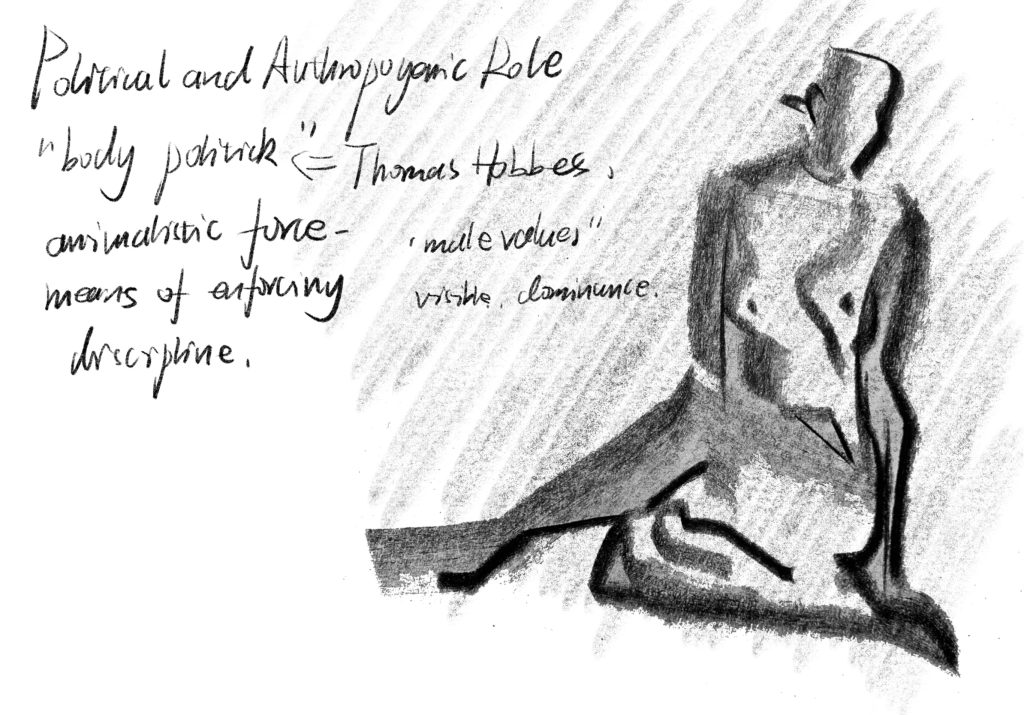 Political and Anthropogenic Role
"body politick" <= Thomas Hobbes.
animalistic force-
means of enforcing
discipline.
"male values"
visible. dominance.